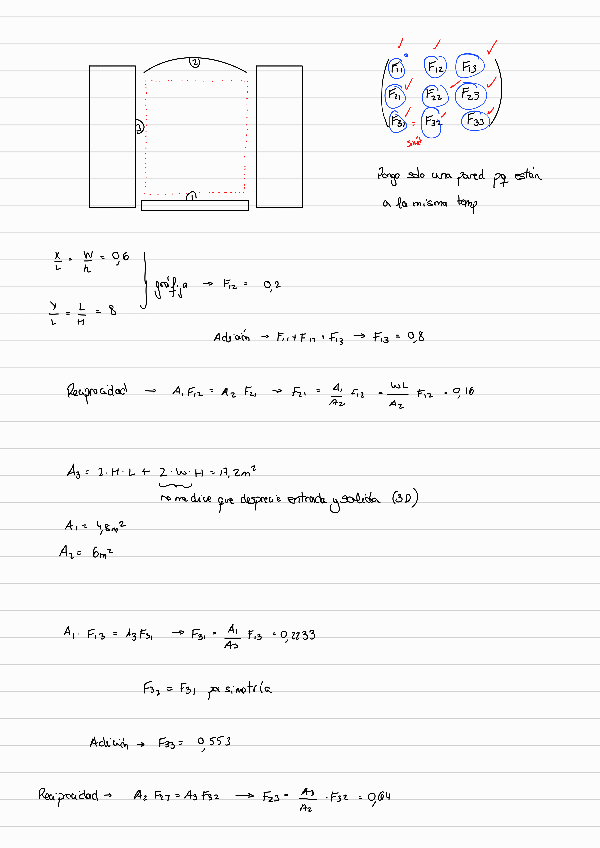 2
3
1
F11 F12 F13
F21 F22 F23
F31 = F32 F33
simé
Pongo solo una pared pq están
a la misma temp
X/L = W/h = 0,6
Y/L = L/H = 8
gráfija → F12 = 0,2
Adición → F11 + F12 + F13 → F13 = 0,8
Reciprocidad → A1 F12 = A2 F21 → F21 = A1/A2 F12 = WL/A2 F12 = 0,16
A3 = 2·H·L + 2·W·H = 17,2m²
no me dice que desprecie entrada y salida (3D)
A1 = 4,8m²
A2 = 6m²
A1· F13 = A3 F31 → F31 = A1/A3 F13 = 0,2233
F32 = F31 por simetría
Adición → F33 = 0,553
Reciprocidad → A2 F23 = A3 F32 → F23 = A3/A2 · F32 = 0,64